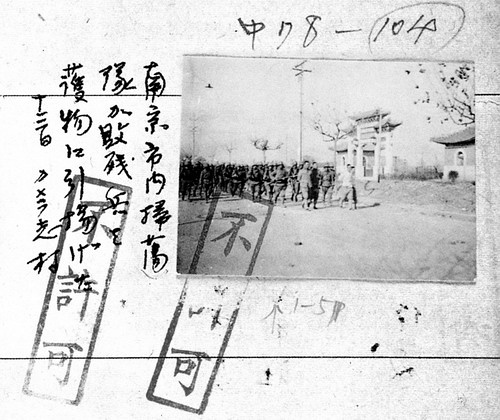 中78-104
南京市内掃蕩
隊が敗残兵を
獲物に引揚げた
十三日 カメラ志村
不許可
不許可